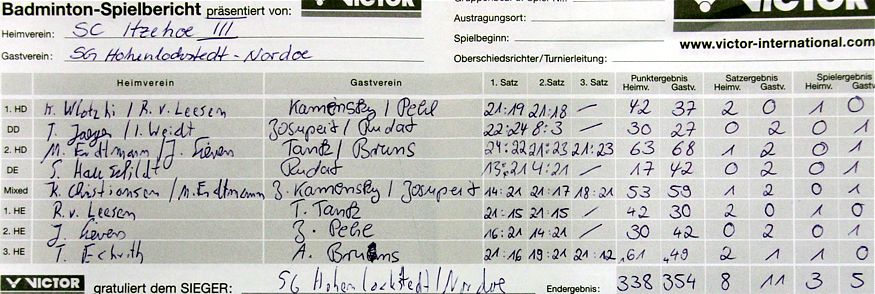 Badminton-Spielbericht präsentiert von: VICTOR
Heimverein: SC Itzehoe III
Gastverein: SG Hohenlockstedt - Nordoe
Austragungsort:
Spielbeginn:
Oberschiedsrichter/Turnierleitung:
VICTOR
www.victor-international.com
Heimverein Gastverein 1. Satz 2.Satz 3. Satz Punktergebnis Heimv. Gastv. Satzergebnis Heimv. Gastv. Spielergebnis Heimv. Gastv.
1. HD K. Wlotzki / R. v. Leesen Kamensky / Pehl 21:19 21:18 — 42 37 2 0 1 0
DD T. Jaeger / I. Weidt Zosupeit / Rudat 22:24 8:3 — 30 27 0 2 0 1
2. HD M. Erdtmann / J. Sieven Tantz / Bruns 24:22 21:23 21:23 63 68 1 2 0 1
DE S. Hauschildt Rudat 13:21 4:21 — 17 42 0 2 0 1
Mixed K. Christiansen / M. Erdtmann Z. Kamensky / Zosupeit 14:21 21:17 18:21 53 59 1 2 0 1
1. HE R. v. Leesen T. Tantz 21:15 21:15 — 42 30 2 0 1 0
2. HE J. Sieven Z. Pehl 16:21 14:21 — 30 42 0 2 0 1
3. HE T. A. Bruns 21:16 19:21 21:12 61 49 2 1 1 0
VICTOR gratuliert dem SIEGER: SG Hohenlockstedt / Nordoe Endergebnis: 338 354 8 11 3 5